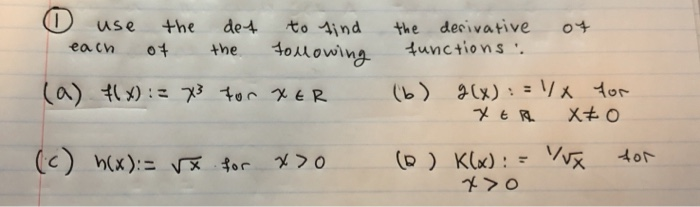 ① use the def to find the derivative of
each of the following functions:
(a) f(x) := x³ for x ∈ R (b) g(x) := 1/x for
x ∈ R x ≠ 0
(c) h(x) := √x for x > 0 (D) K(x) := 1/√x for
x > 0